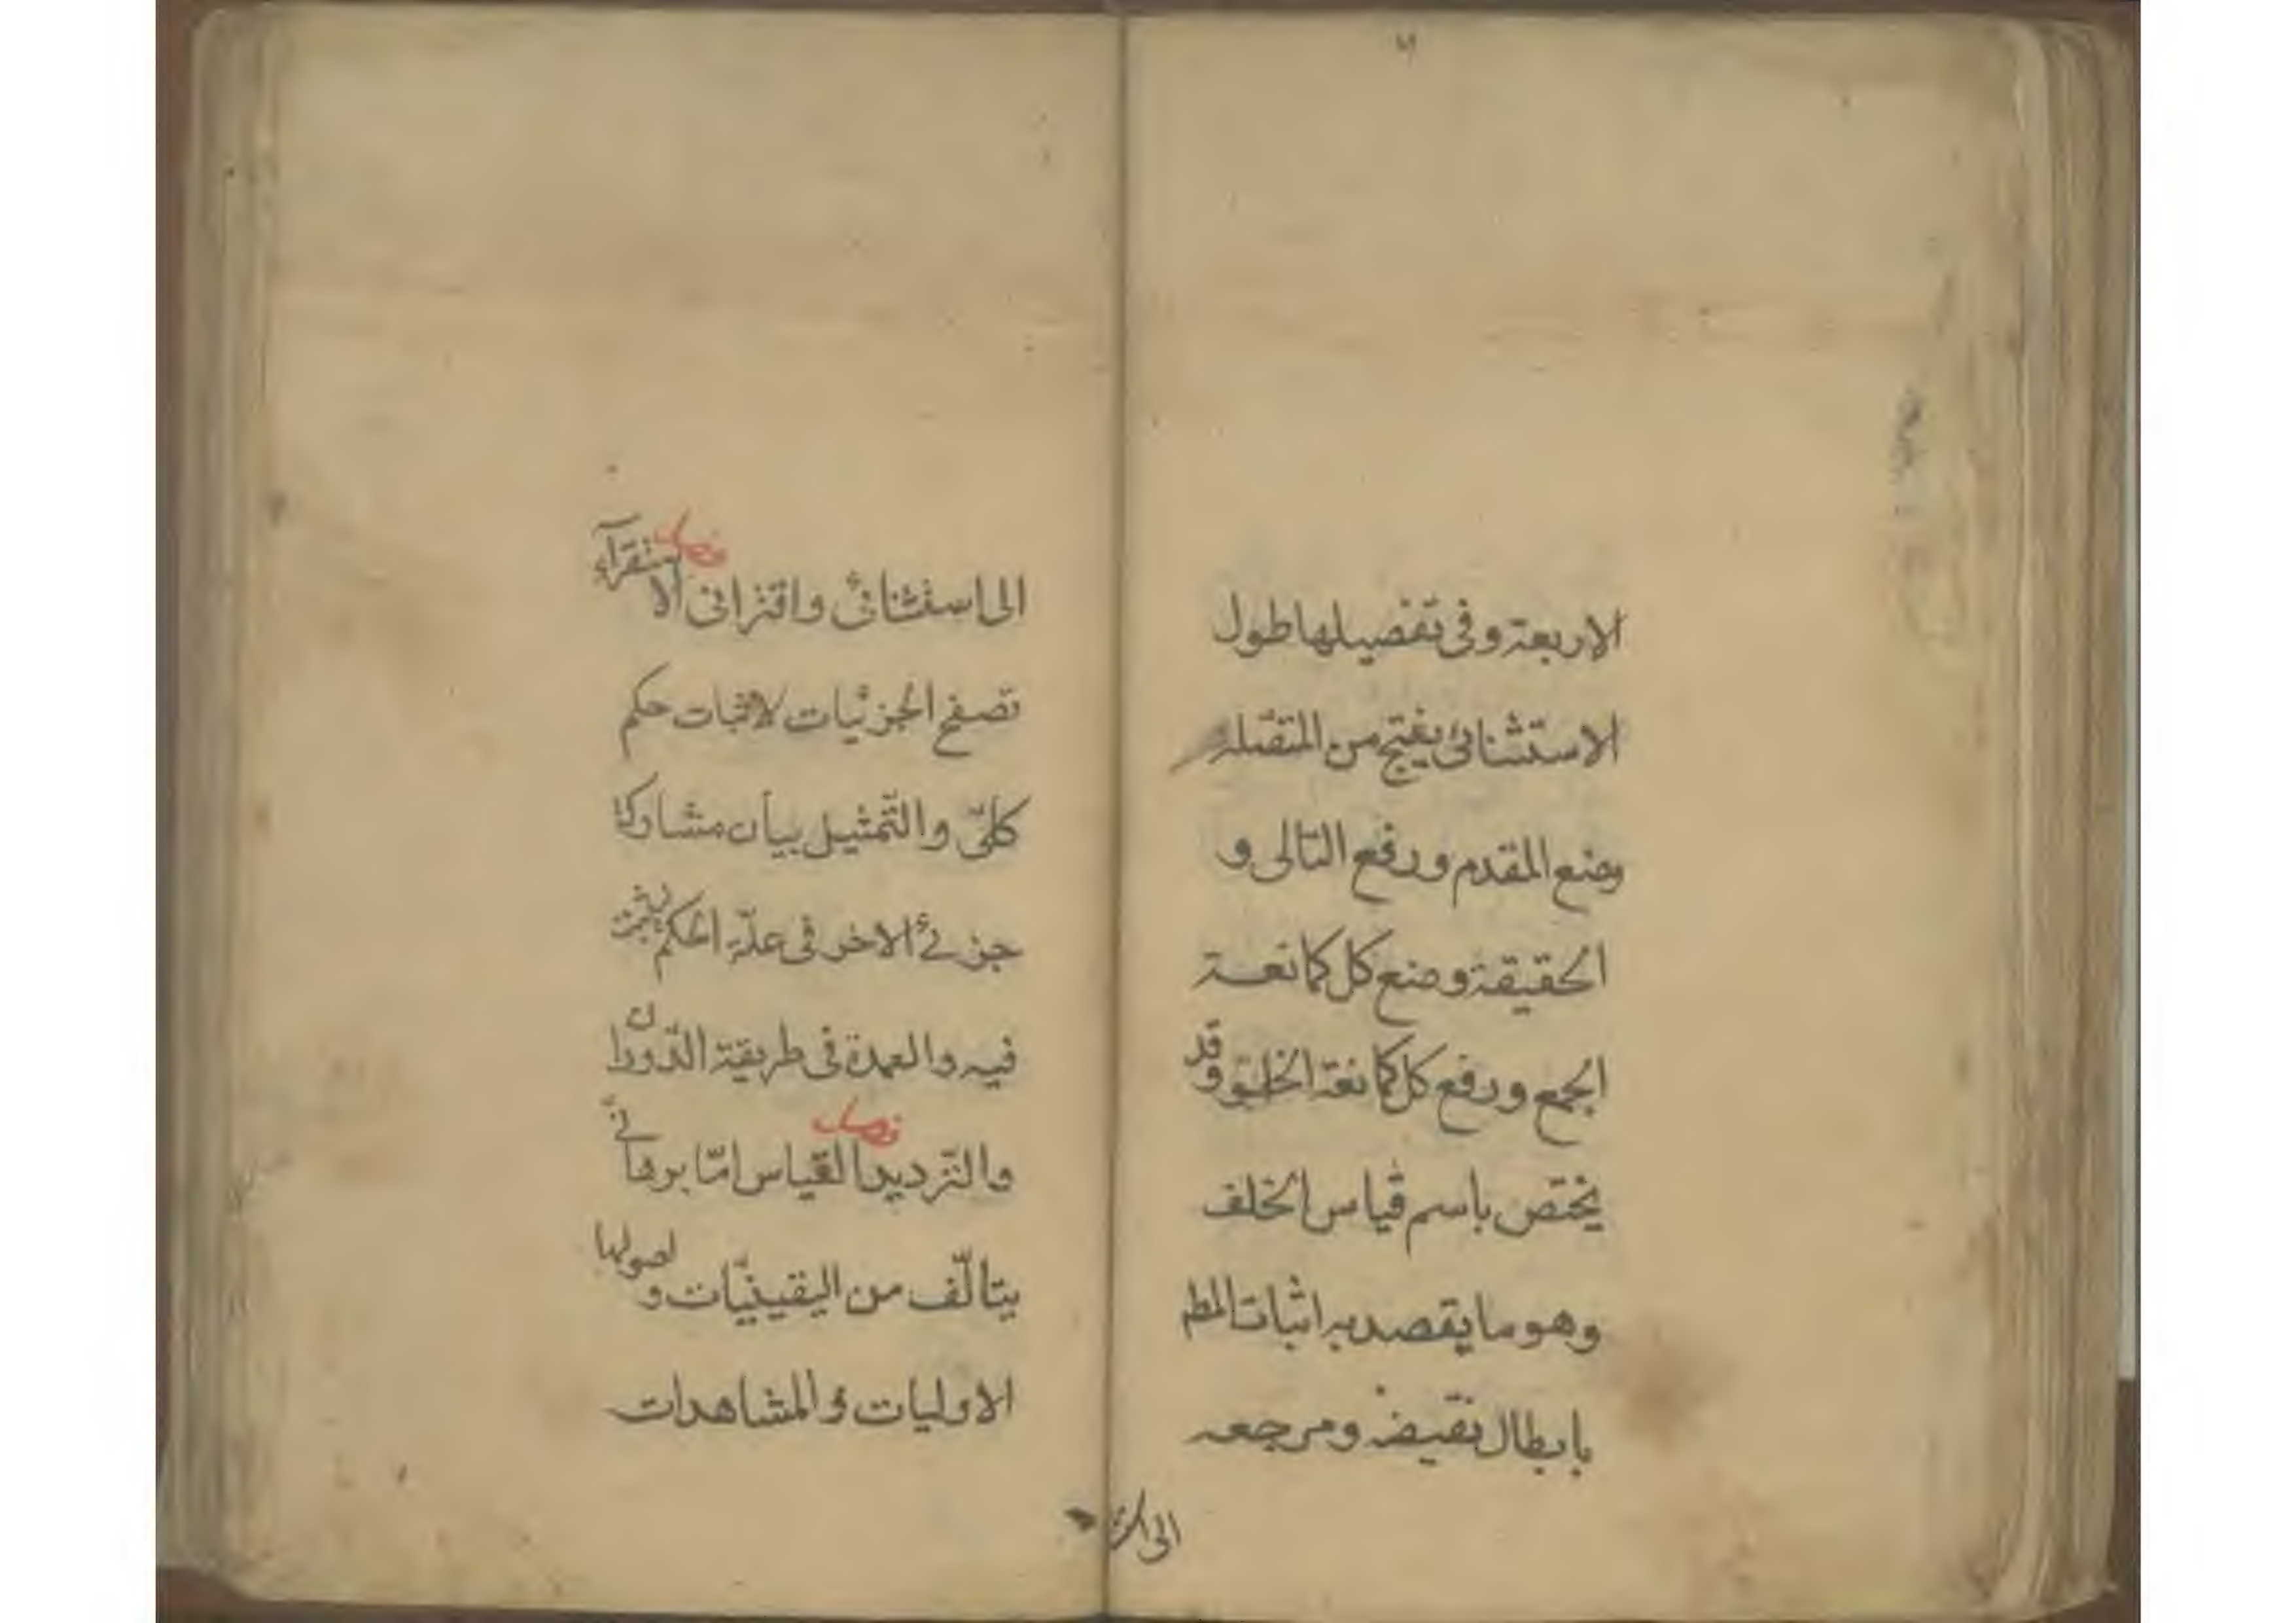 الاربعة وفى تفصيلها طول
الاستثنائى ينتج من المتصلة
وضع المقدم ورفع التالى و
الحقيقة وضع كل كمانعة
الجمع ورفع كل كمانعة الخلو وقد
يختص باسم قياس الخلف
وهو ما يقصد به اثبات المط
بابطال نقيضه ومرجعه
الى است
الى استثنائى واقترانى فصل الاستقرآء
تصفح الجزئيات لاثبات حكم
كلىّ والتّمثيل بيان مشاركة
جزئ الاخر فى علّة الحكم ليثبت
فيه والعمدة فى طريقة الدّوران
والترديد فصل القياس امّا برهانىّ
يتالّف من اليقينيّات واصولها
الاوليات والمشاهدات